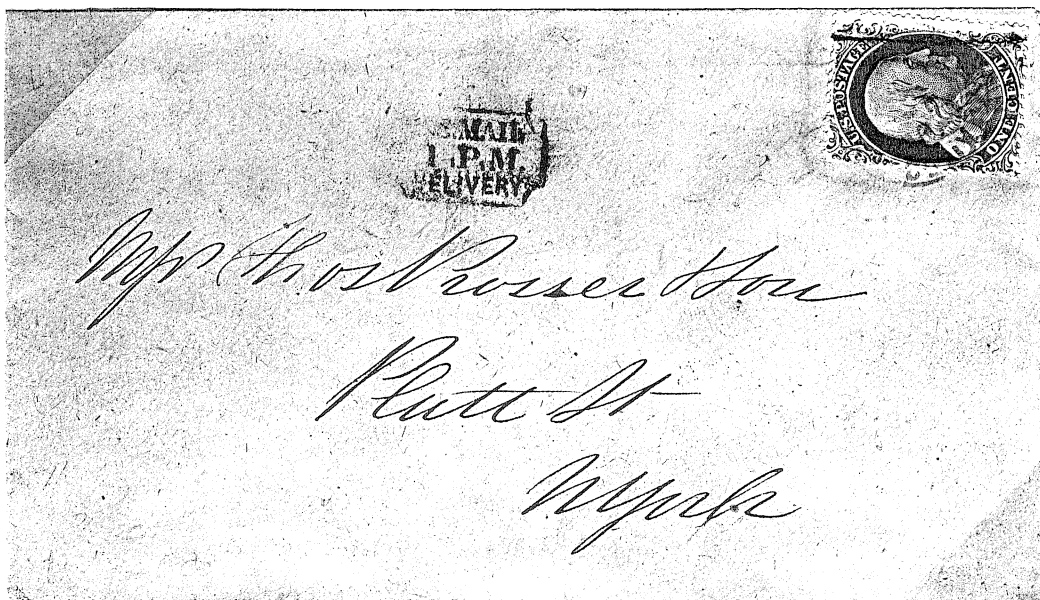 U.S. POSTAGE
ONE CENT
S. MAIL
1 P.M.
ELIVERY
Thos Prosser & Son
Platt St
N York